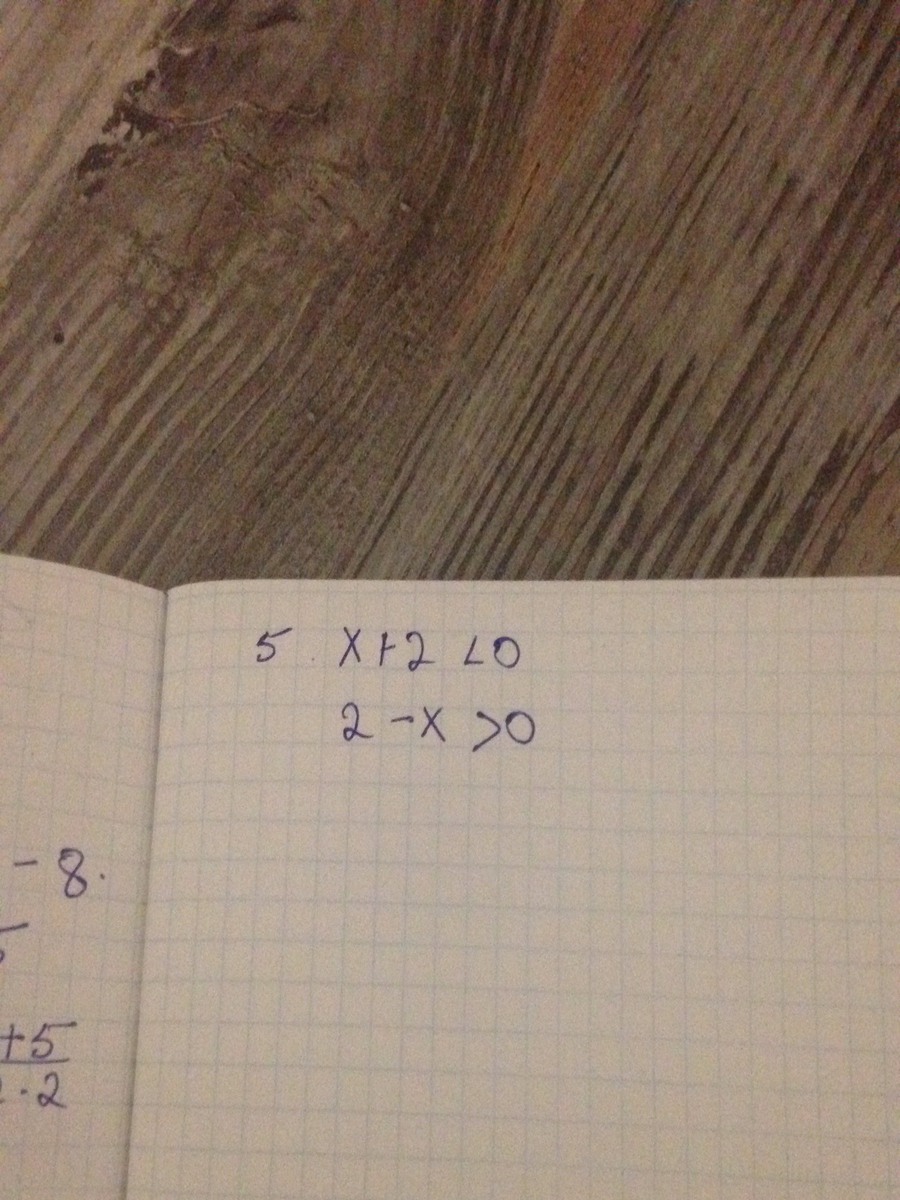 5. x+2 <0
2-x >0
-8.
5
+5
2·2